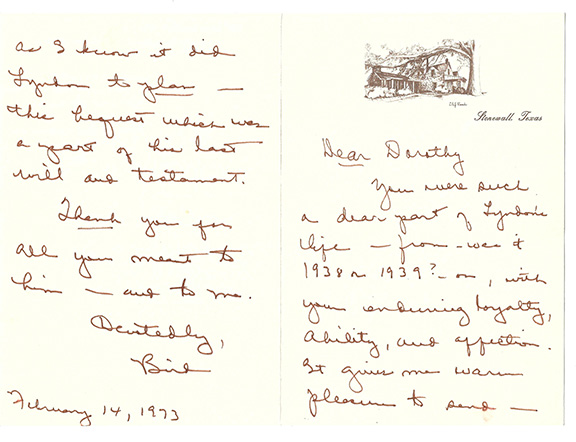 Stonewall, Texas
Dear Dorothy
You were such
a dear part of Lyndon's
life — from - was it
1938 or 1939? - on, with
your enduring loyalty,
ability, and affection.
It gives me warm
pleasure to send —
as I know it did
Lyndon to plan —
this bequest which was
a part of his last
will and testament.
Thank you for
all you meant to
him — and to me.
Devotedly,
Bird
February 14, 1973